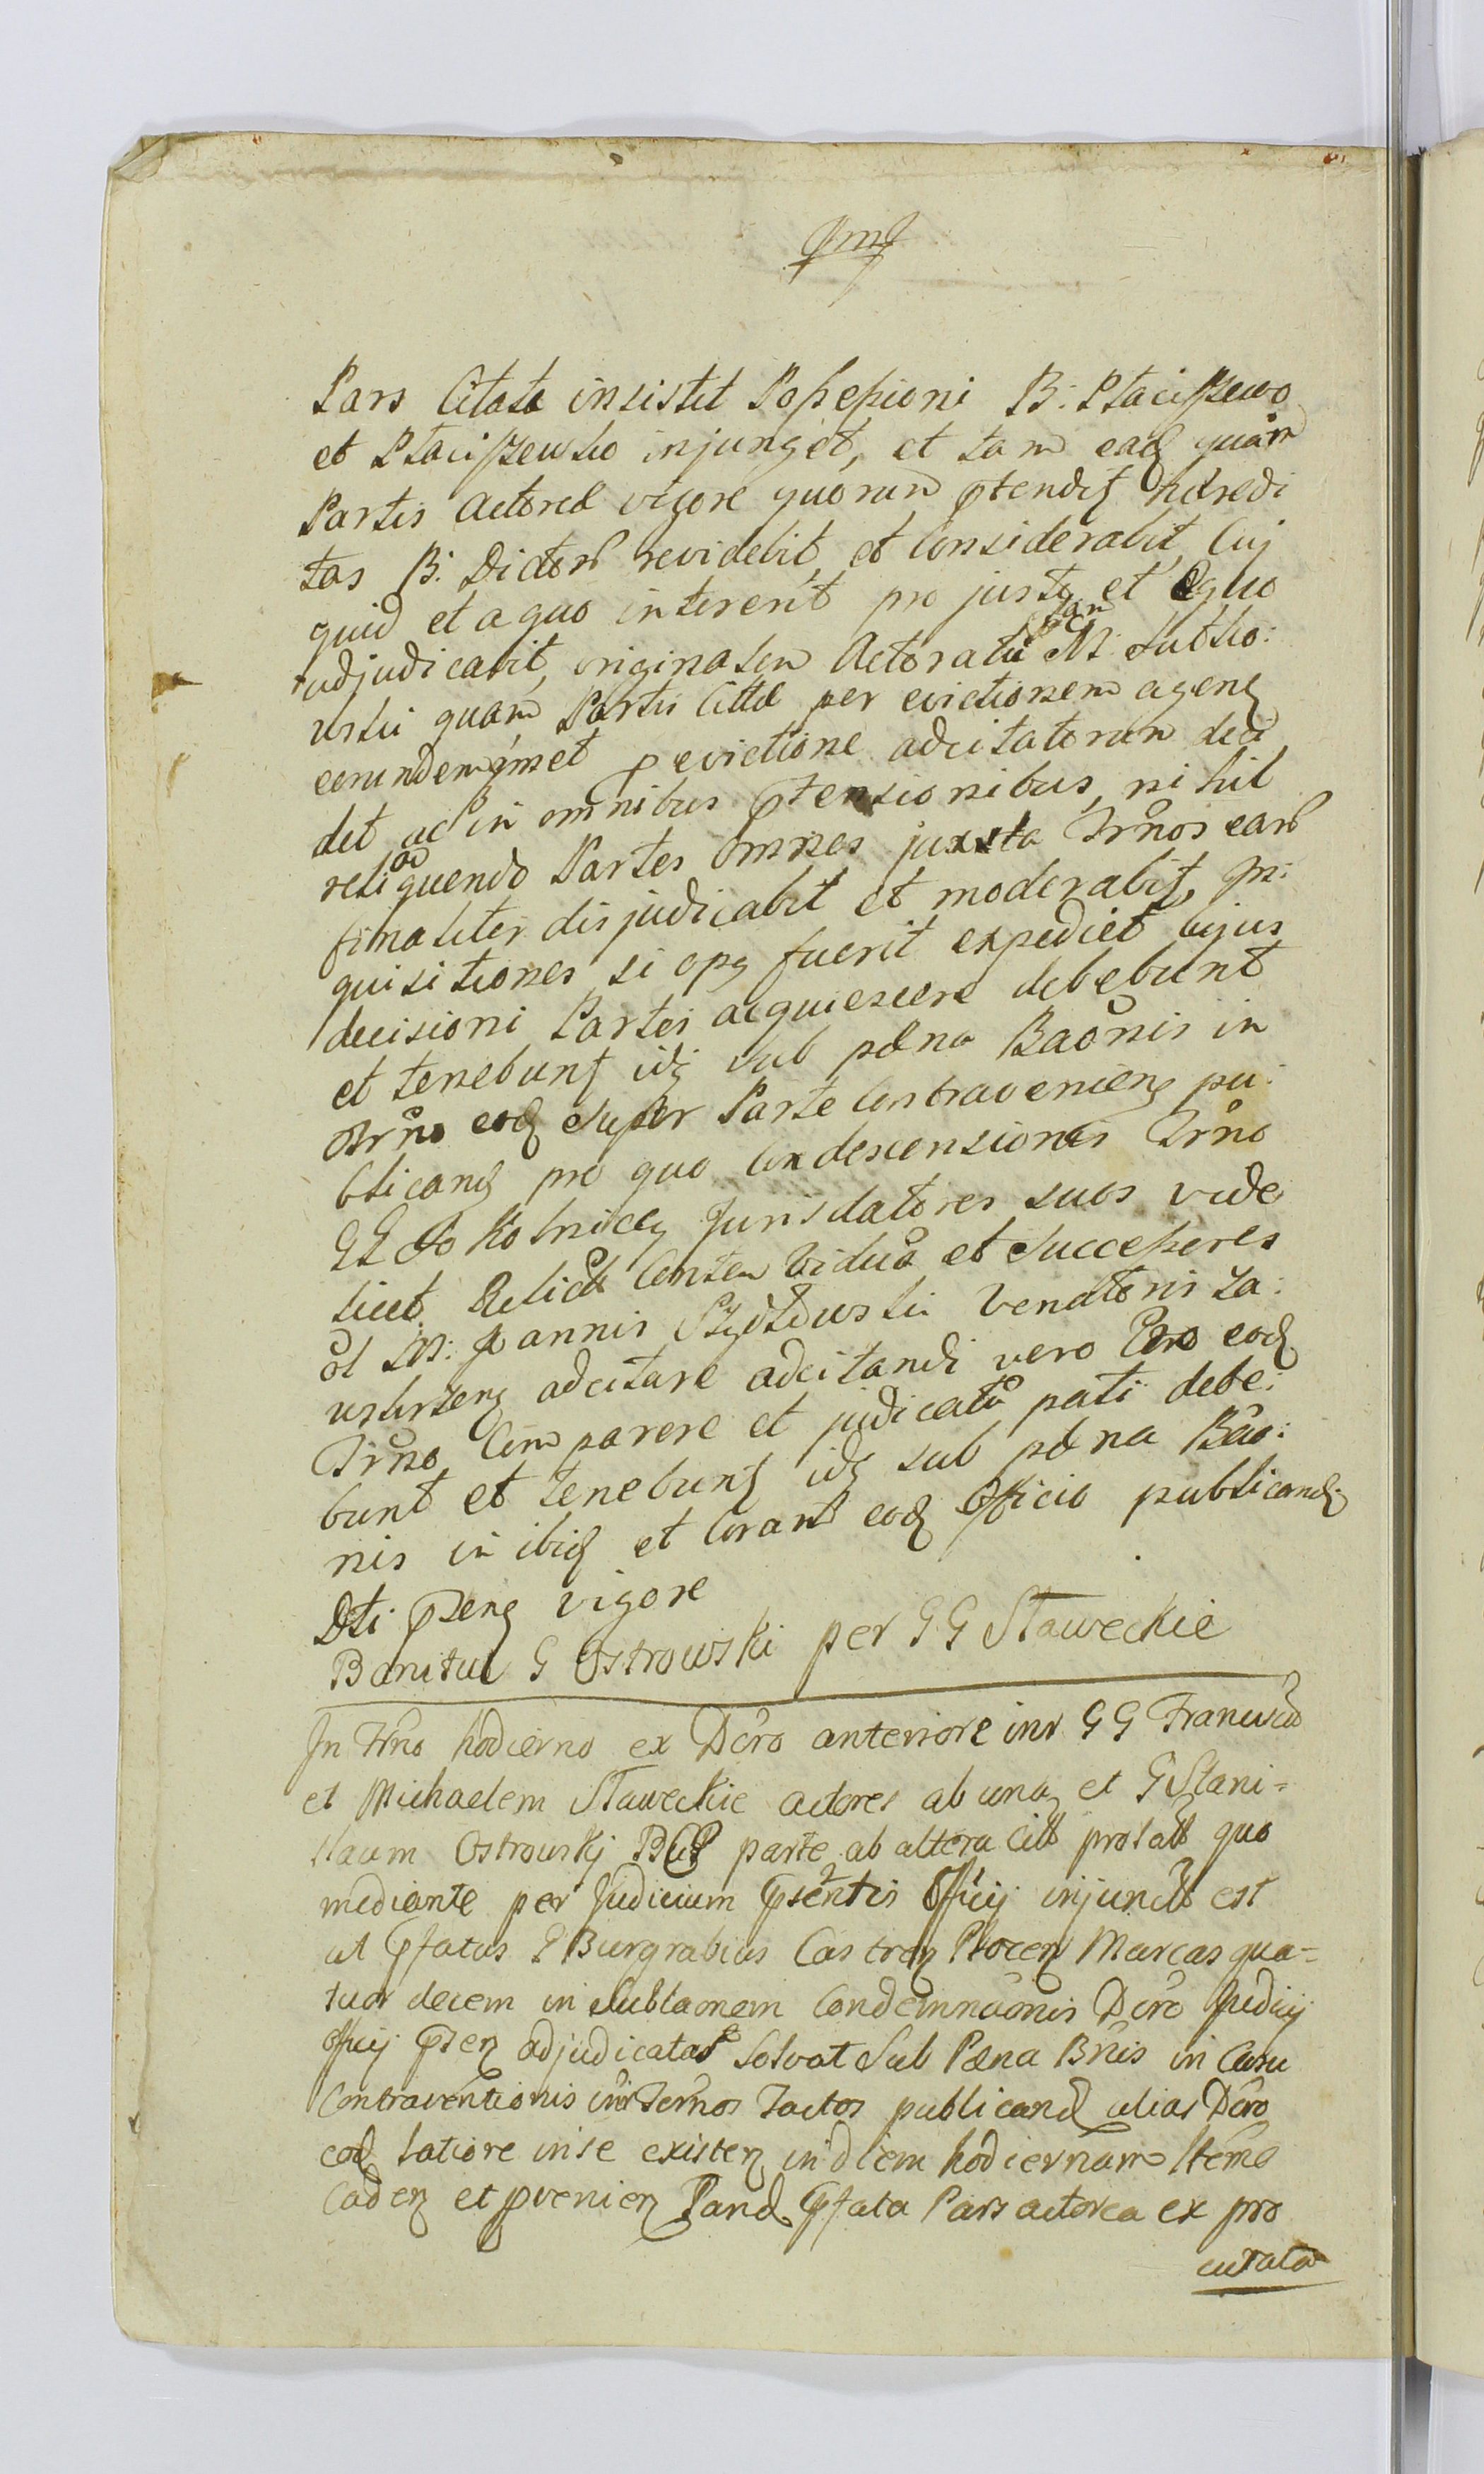 Pars Citata insistit Possessioni B: Ptaciszewo
et Ptaciszewko injunget, et tam eaq quam
Partis Actoreæ vigore quorum ptendit hæredi
tas B: Dictor revidebit, et Considerabit, Cuj
quid et a quo intererit pro justo et Æquo
adjudicabit, originalem Actoratu tam M: Sutko:
wski quam Partis Cittæ per evictionem agen
eorundemqmet p evictione adcitatorum deci
det ac in omnibus ptensionibus, nihil
relinquendo Partes omnes juxta Trnos earu
finaliter disjudicabit et moderabit, In:
quisitiones si opq fuerit expediet cujus
decisioni Partes acquiescere debebunt
et tenebunt idq sub pœna Baonis in
Trno eod Super Parte Contravenien pu:
blicand pro quo Condescensionis Trno
GG Sokolnicy Jurisdatores suos vide
licet Relictã Consten Viduã et Successores
ol M: Joannis Venatoris Za:
wskrzen adcitare adcitandi vero Cro eod
Trno Comparere et judicatũ pati debe:
bunt et tenebunt idq sub pœna Bao:
nis in ibid et Coram eod Officio publicand
Dti pzen vigore
Banitus G Ostrowski per GG Staweckie
In Trno hodierno ex Dcro anteriore inr GG Franciscũ
et Michaelem Staweckie actores ab una et G Stani=
slaum Ostrowskj parte ab altera Citt prolatt quo
mediante per Judicium psentis Officij injunctt est
ut pfatus G Burgrabius Castren Plocen Marcas qua=
tuor decem in Sublaonem Condemnaonis Dcro Judicij
Officij psen adjudicatas Solvat Sub Pœna Bnis in Casu
Contraventionis inr Ternos Tactos publicand alias Dcro
eod latiore in se existen in diem hodiernam Item
Caden et pvenien Pand pfata Pars actorea ex pro
curata